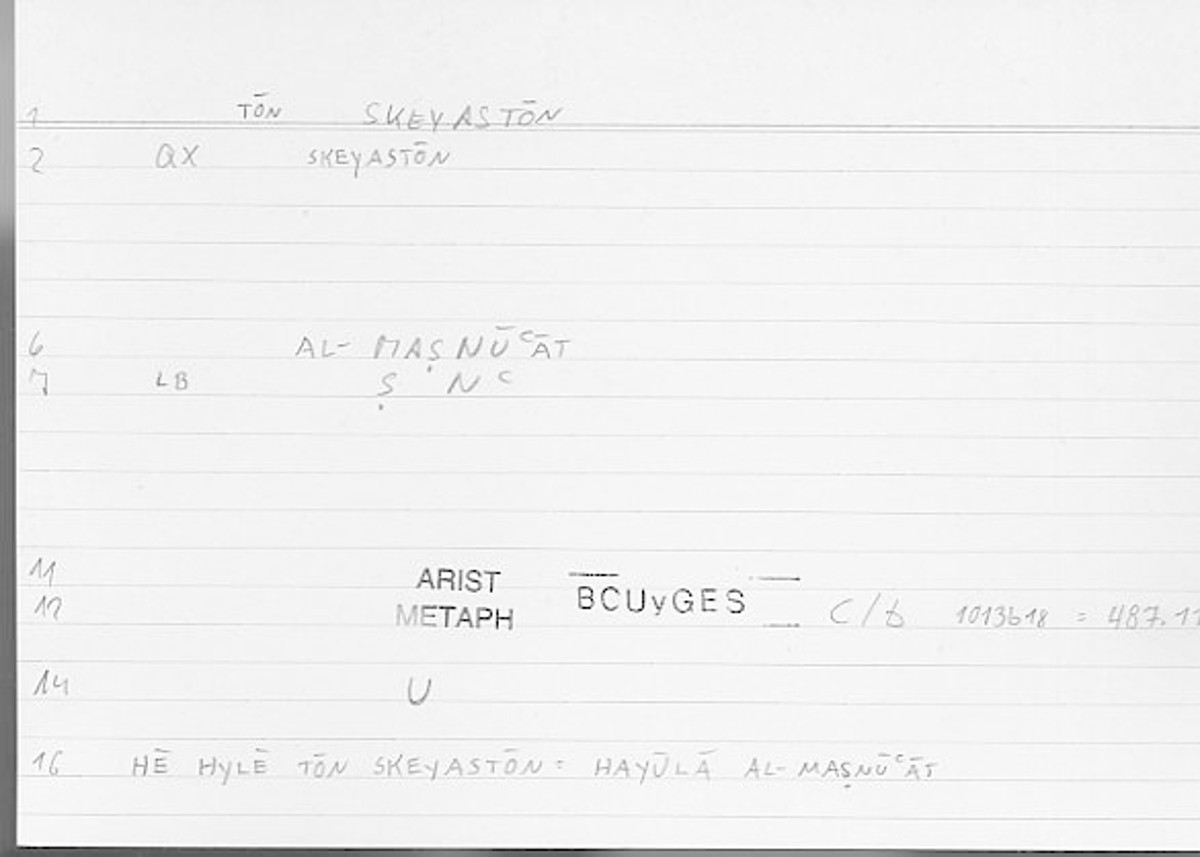 1 TŌN SKEYASTŌN
2 QX SKEYASTŌN
6 AL- MAṢNŪʿĀT
7 LB Ṣ N ʿ
11 ARIST
12 METAPH BCUyGES C/b 1013b18 = 487.11
14 U
16 HĒ HYLĒ TŌN SKEYASTŌN = HAYŪLĀ AL-MAṢNŪʿĀT